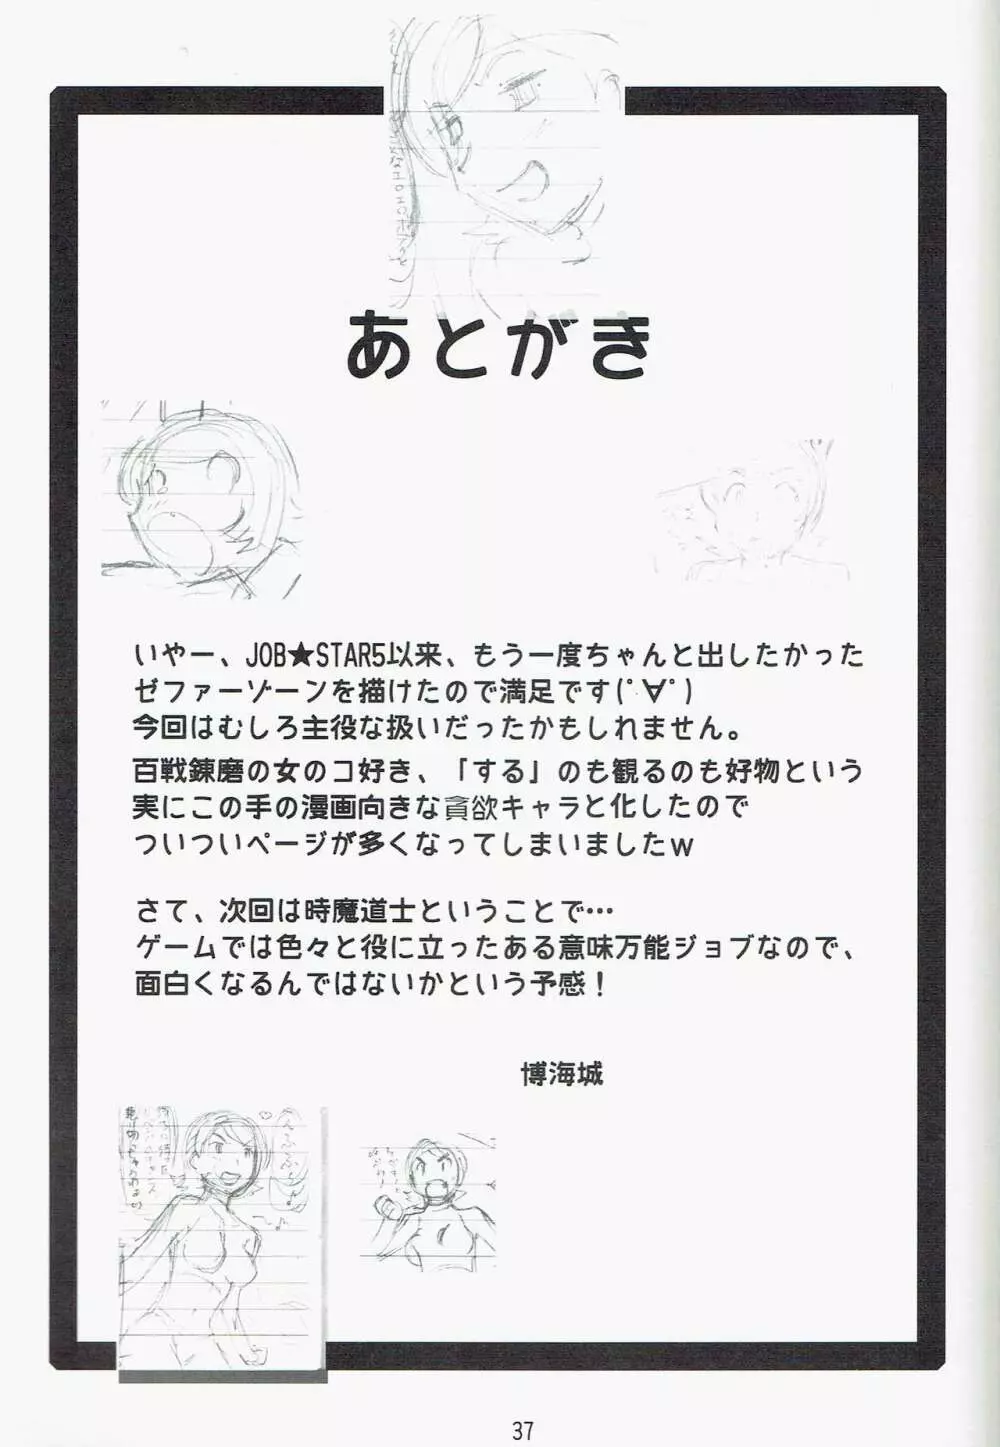 あとがき
いやー、JOB★STAR5以来、もう一度ちゃんと出したかった
ゼファーゾーンを描けたので満足です(ﾟ∀ﾟ)
今回はむしろ主役な扱いだったかもしれません。
百戦錬磨の女のコ好き、「する」のも観るのも好物という
実にこの手の漫画向きな貪欲キャラと化したので
ついついページが多くなってしまいましたｗ
さて、次回は時魔道士ということで…
ゲームでは色々と役に立ったある意味万能ジョブなので、
面白くなるんではないかという予感！
博海城
37